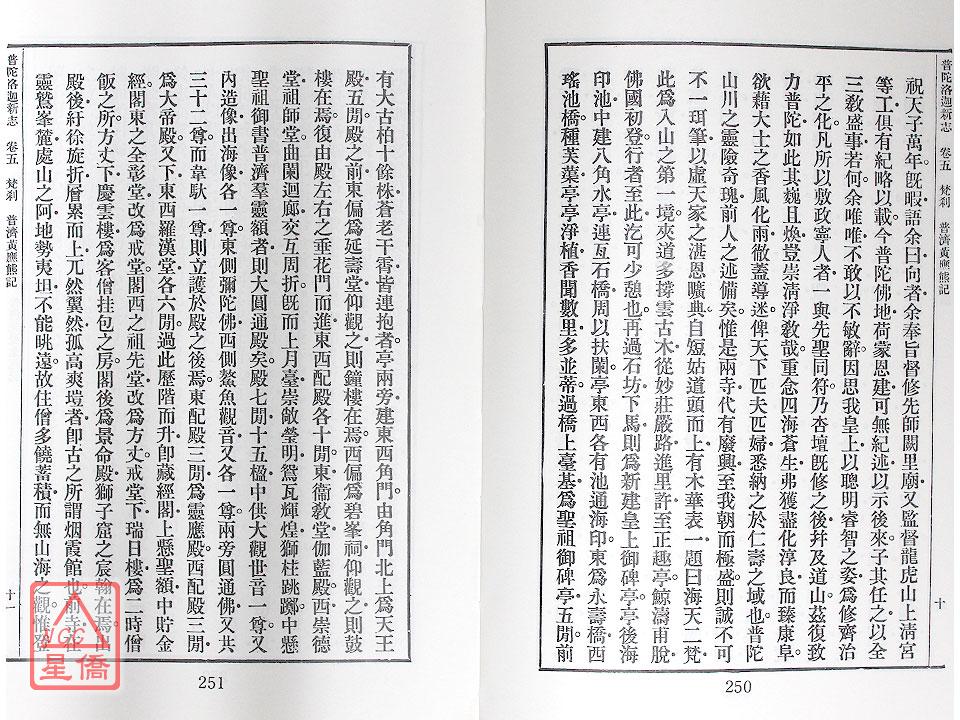 普陀洛迦新志　卷五　梵刹　普濟黃應熊記
十
祝天子萬年。旣暇語余曰向者余奉旨督修先師闕里廟又監督龍虎山上淸宮
等工俱有紀略以載今普陀佛地荷蒙恩建可無紀述以示後來子其任之以全
三敎盛事若何余唯唯不敢以不敏辭因思我皇上以聰明睿智之姿爲修齊治
平之化凡所以敷政寧人者一與先聖同符乃杏壇旣修之後幷及道山茲復致
力普陀如此其巍且煥豈崇淸淨敎哉重念四海蒼生弗獲盡化淳良而臻康阜
欲藉大士之香風化雨倣蓋導迷俾天下匹夫匹婦悉納之於仁壽之域也普陀
山川之靈險奇瑰前人之述備矣惟是兩寺代有廢興至我朝而極盛則誠不可
不一珥筆以虛天家之湛恩曠典自短姑道頭而上有木華表一題曰海天二梵
此爲入山之第一境夾道多撐雲古木從妙莊嚴路進里許至正趣亭鯨濤甫脫
佛國初登行者至此汔可少憩也再過石坊下馬則爲新建皇上御碑亭亭後海
印池中建八角水亭連亙石橋周以扶闌亭東西各有池通海印東爲永壽橋西
瑤池橋種芙蕖亭亭淨植香聞數里多並蒂過橋上臺基爲聖祖御碑亭五閒前
有大古柏十餘株蒼老干霄皆連抱者亭兩旁建東西角門由角門北上爲天王
殿五閒殿之前東偏爲延壽堂仰觀之則鐘樓在焉西偏爲碧峯祠仰觀之則鼓
樓在焉復由殿左右之垂花門而進東西配殿各十閒東衞敎堂伽藍殿西崇德
堂祖師堂曲闌迴廊交互周折旣而上月臺崇敞瑩明鴛瓦輝煌獅桂跳躑中懸
聖祖御書普濟羣靈額者則大圓通殿矣殿七閒十五楹中供大觀世音一尊又
內造像出海像各一尊東側彌陀佛西側鰲魚觀音又各一尊兩旁圓通佛又共
三十二尊而韋馱一尊則立護於殿之後焉東配殿三閒爲靈應殿西配殿三閒
爲大帝殿又下東西羅漢堂各六閒過此歷階而升卽藏經閣上懸聖額中貯金
經閣東之全彰堂改爲戒堂閣西之祖先堂改爲方丈戒堂下瑞日樓爲二時僧
飯之所方丈下慶雲樓爲客僧挂包之房閣後爲景命殿獅子窟之宸翰在焉出
殿後紆徐旋折層累而上兀然翼然孤高爽塏者卽古之所謂烟霞館也前寺在
靈鷲峯麓處山之阿地勢夷坦不能眺遠故住僧多饒蓄積而無山海之觀惟登
普陀洛迦新志　卷五　梵刹　普濟黃應熊記
十一
250
251
NCC
星僑